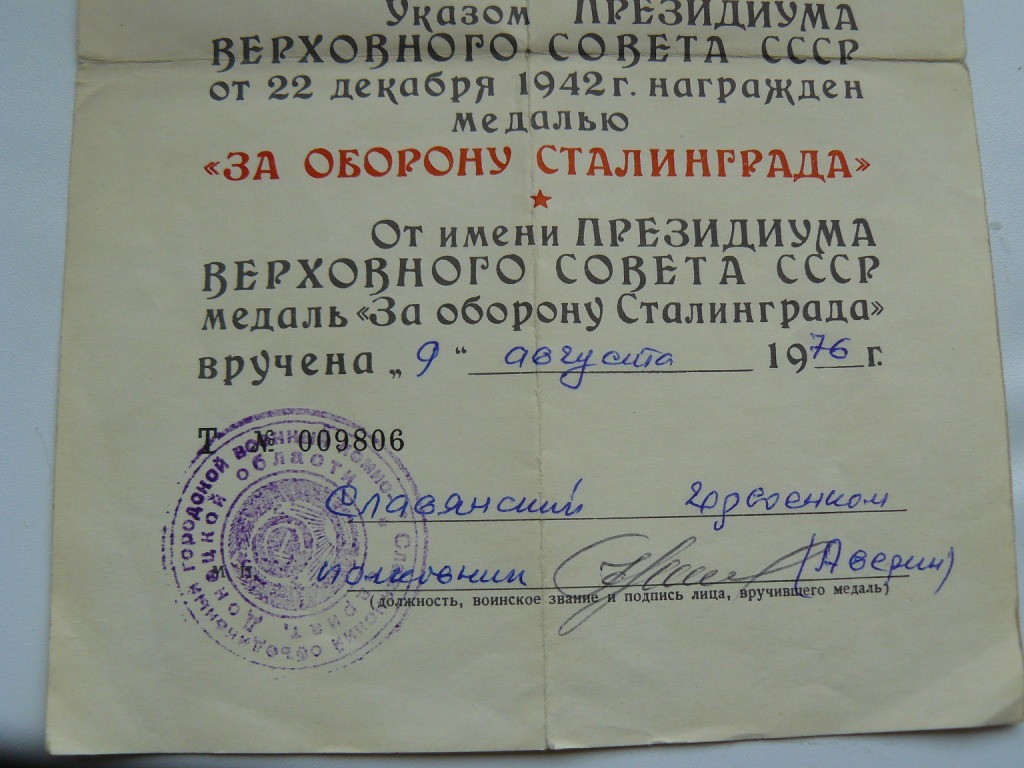 Указом ПРЕЗИДИУМА
ВЕРХОВНОГО СОВЕТА СССР
от 22 декабря 1942 г. награжден
медалью
«ЗА ОБОРОНУ СТАЛИНГРАДА»
От имени ПРЕЗИДИУМА
ВЕРХОВНОГО СОВЕТА СССР
медаль «За оборону Сталинграда»
вручена „9“ августа 1976 г.
Т № 009806
Славянский горвоенком
М. П. полковник (Аверин)
(должность, воинское звание и подпись лица, вручившего медаль)
объединенный городской военный
Донецкой области